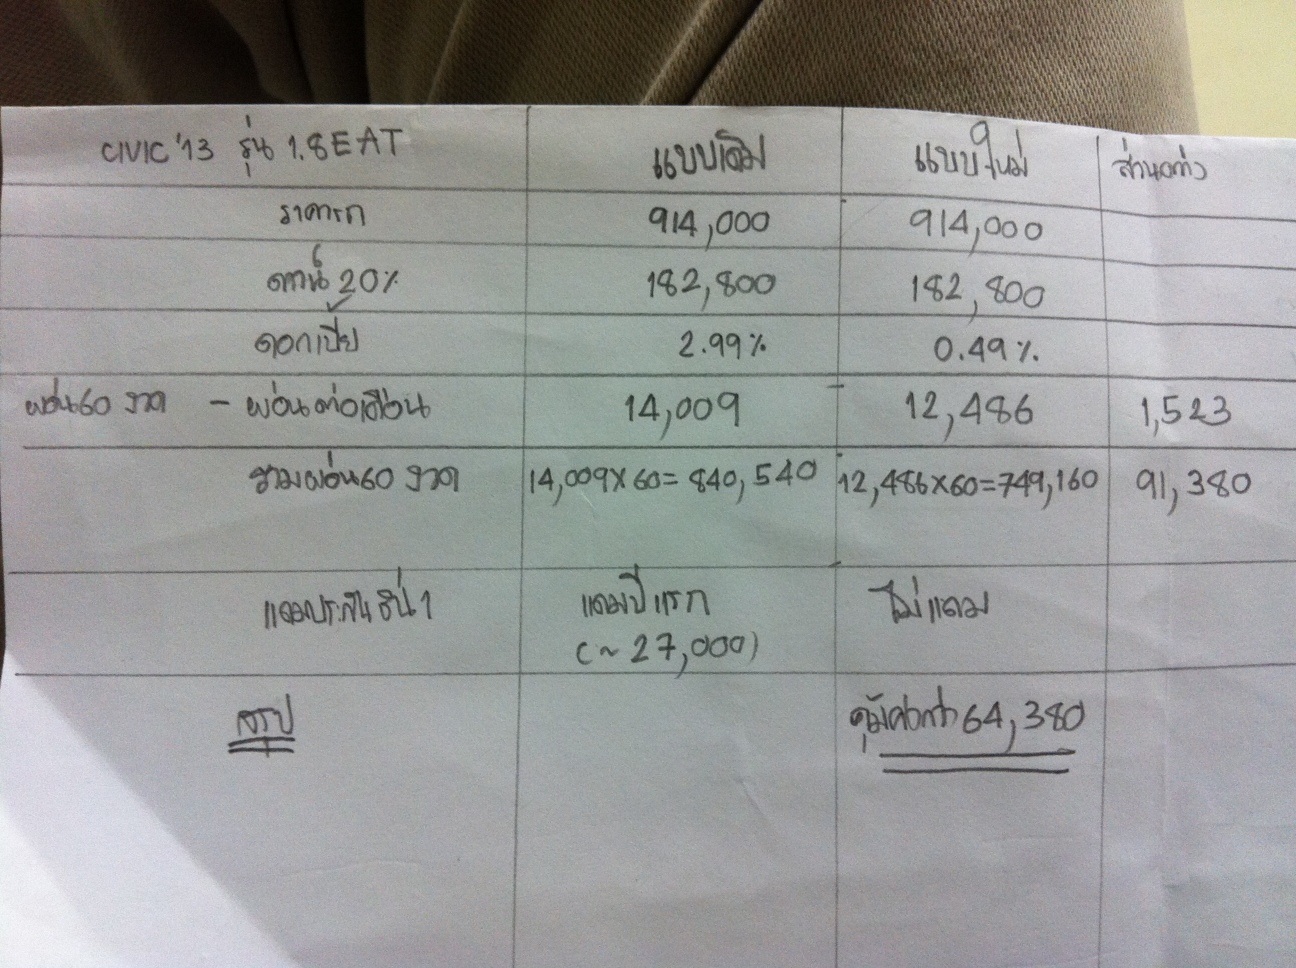 CIVIC '13 รุ่น 1.8E AT แบบเดิม แบบใหม่ ส่วนต่าง
ราคารถ 914,000 914,000
ดาวน์ 20% 182,800 182,800
ดอกเบี้ย 2.99% 0.49%
ผ่อน 60 งวด - ผ่อนต่อเดือน 14,009 12,486 1,523
รวมผ่อน 60 งวด 14,009 x 60 = 840,540 12,486 x 60 = 749,160 91,380
แถมประกันชั้น 1 แถมปีแรก ไม่แถม
(~ 27,000)
สรุป คุ้มค่ากว่า 64,380